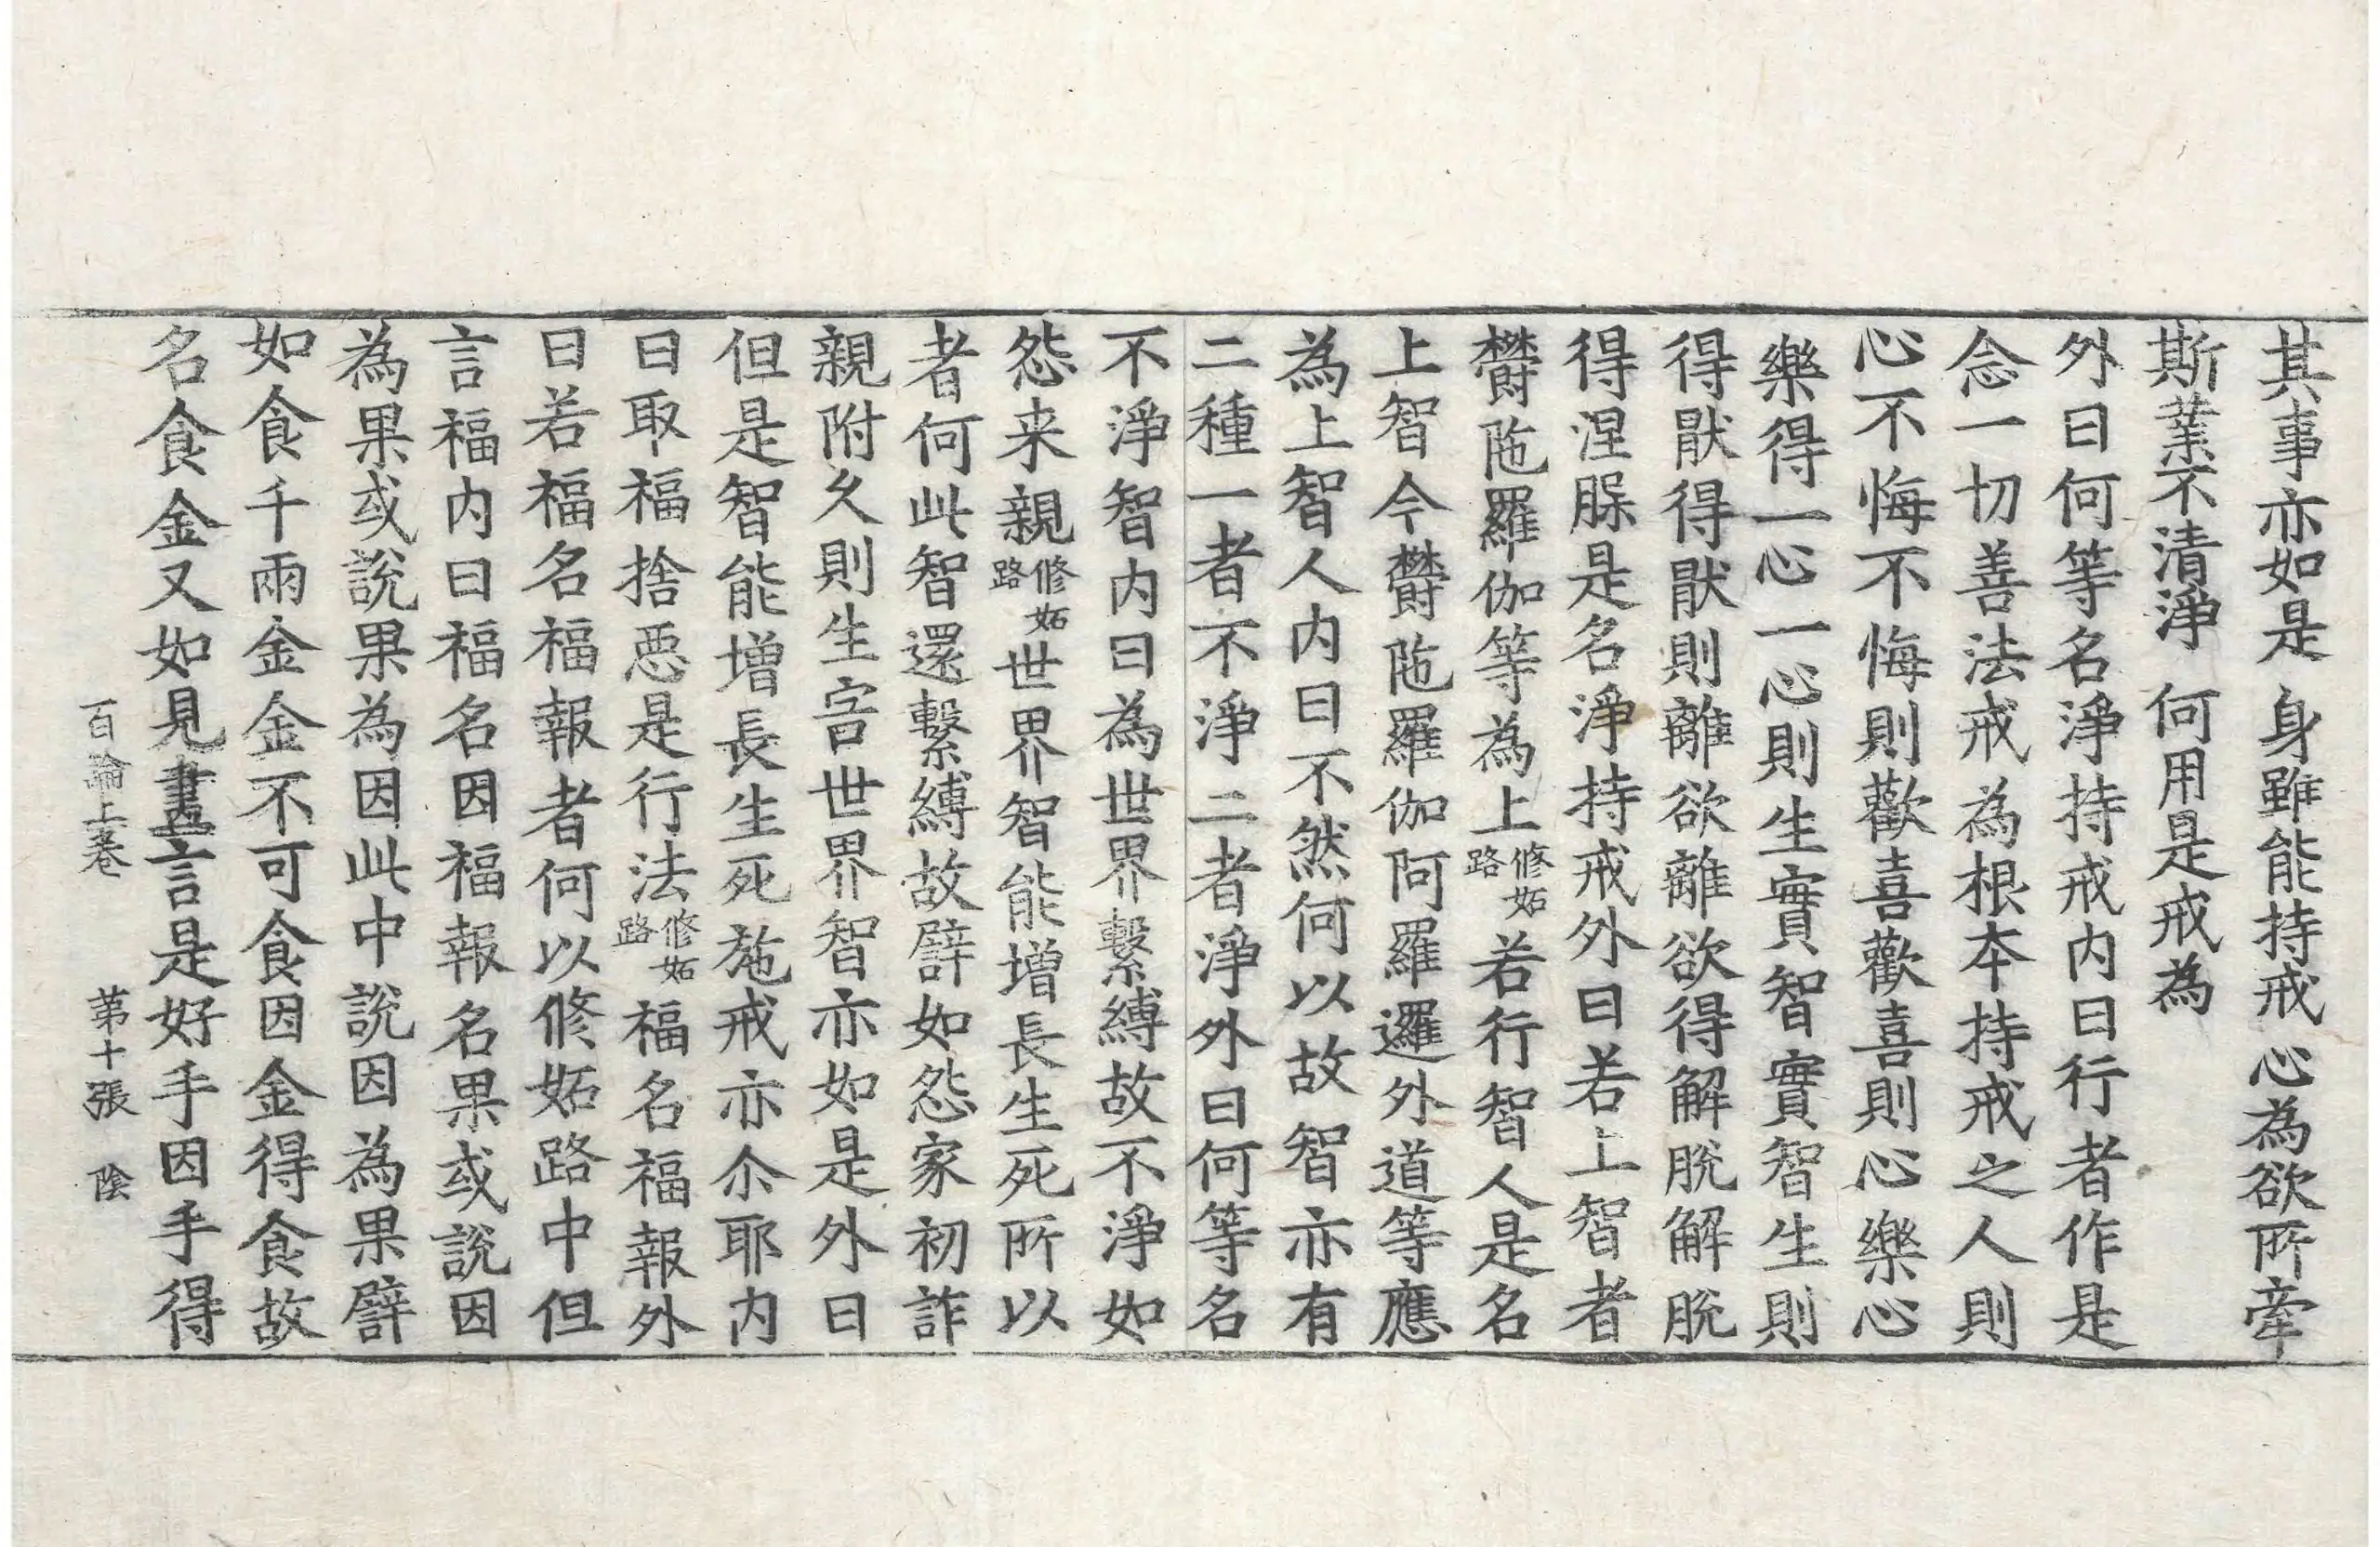 其事亦如是 身雖能持戒 心為欲所牽
斯業不清淨 何用是戒為
外曰何等名淨持戒内曰行者作是
念一切善法戒為根本持戒之人則
心不悔不悔則歡喜歡喜則心樂心
樂得一心一心則生實智實智生則
得猒得猒則離欲離欲得解脫解脫
得涅槃是名淨持戒外曰若上智者
欝陁羅伽等為上修妬路若行智人是名
上智今欝陁羅伽阿羅邏外道等應
為上智人内曰不然何以故智亦有
二種一者不淨二者淨外曰何等名
不淨智内曰為世界繫縛故不淨如
怨来親修妬路世界智能增長生死所以
者何此智還繫縛故譬如怨家初詐
親附久則生害世界智亦如是外曰
但是智能增長生死施戒亦尒耶内
曰取福捨惡是行法修妬路福名福報外
曰若福名福報者何以修妬路中但
言福内曰福名因福報名果或說因
為果或說果為因此中說因為果譬
如食千兩金金不可食因金得食故
名食金又如見畫言是好手因手得
百論上卷 第十張 陰